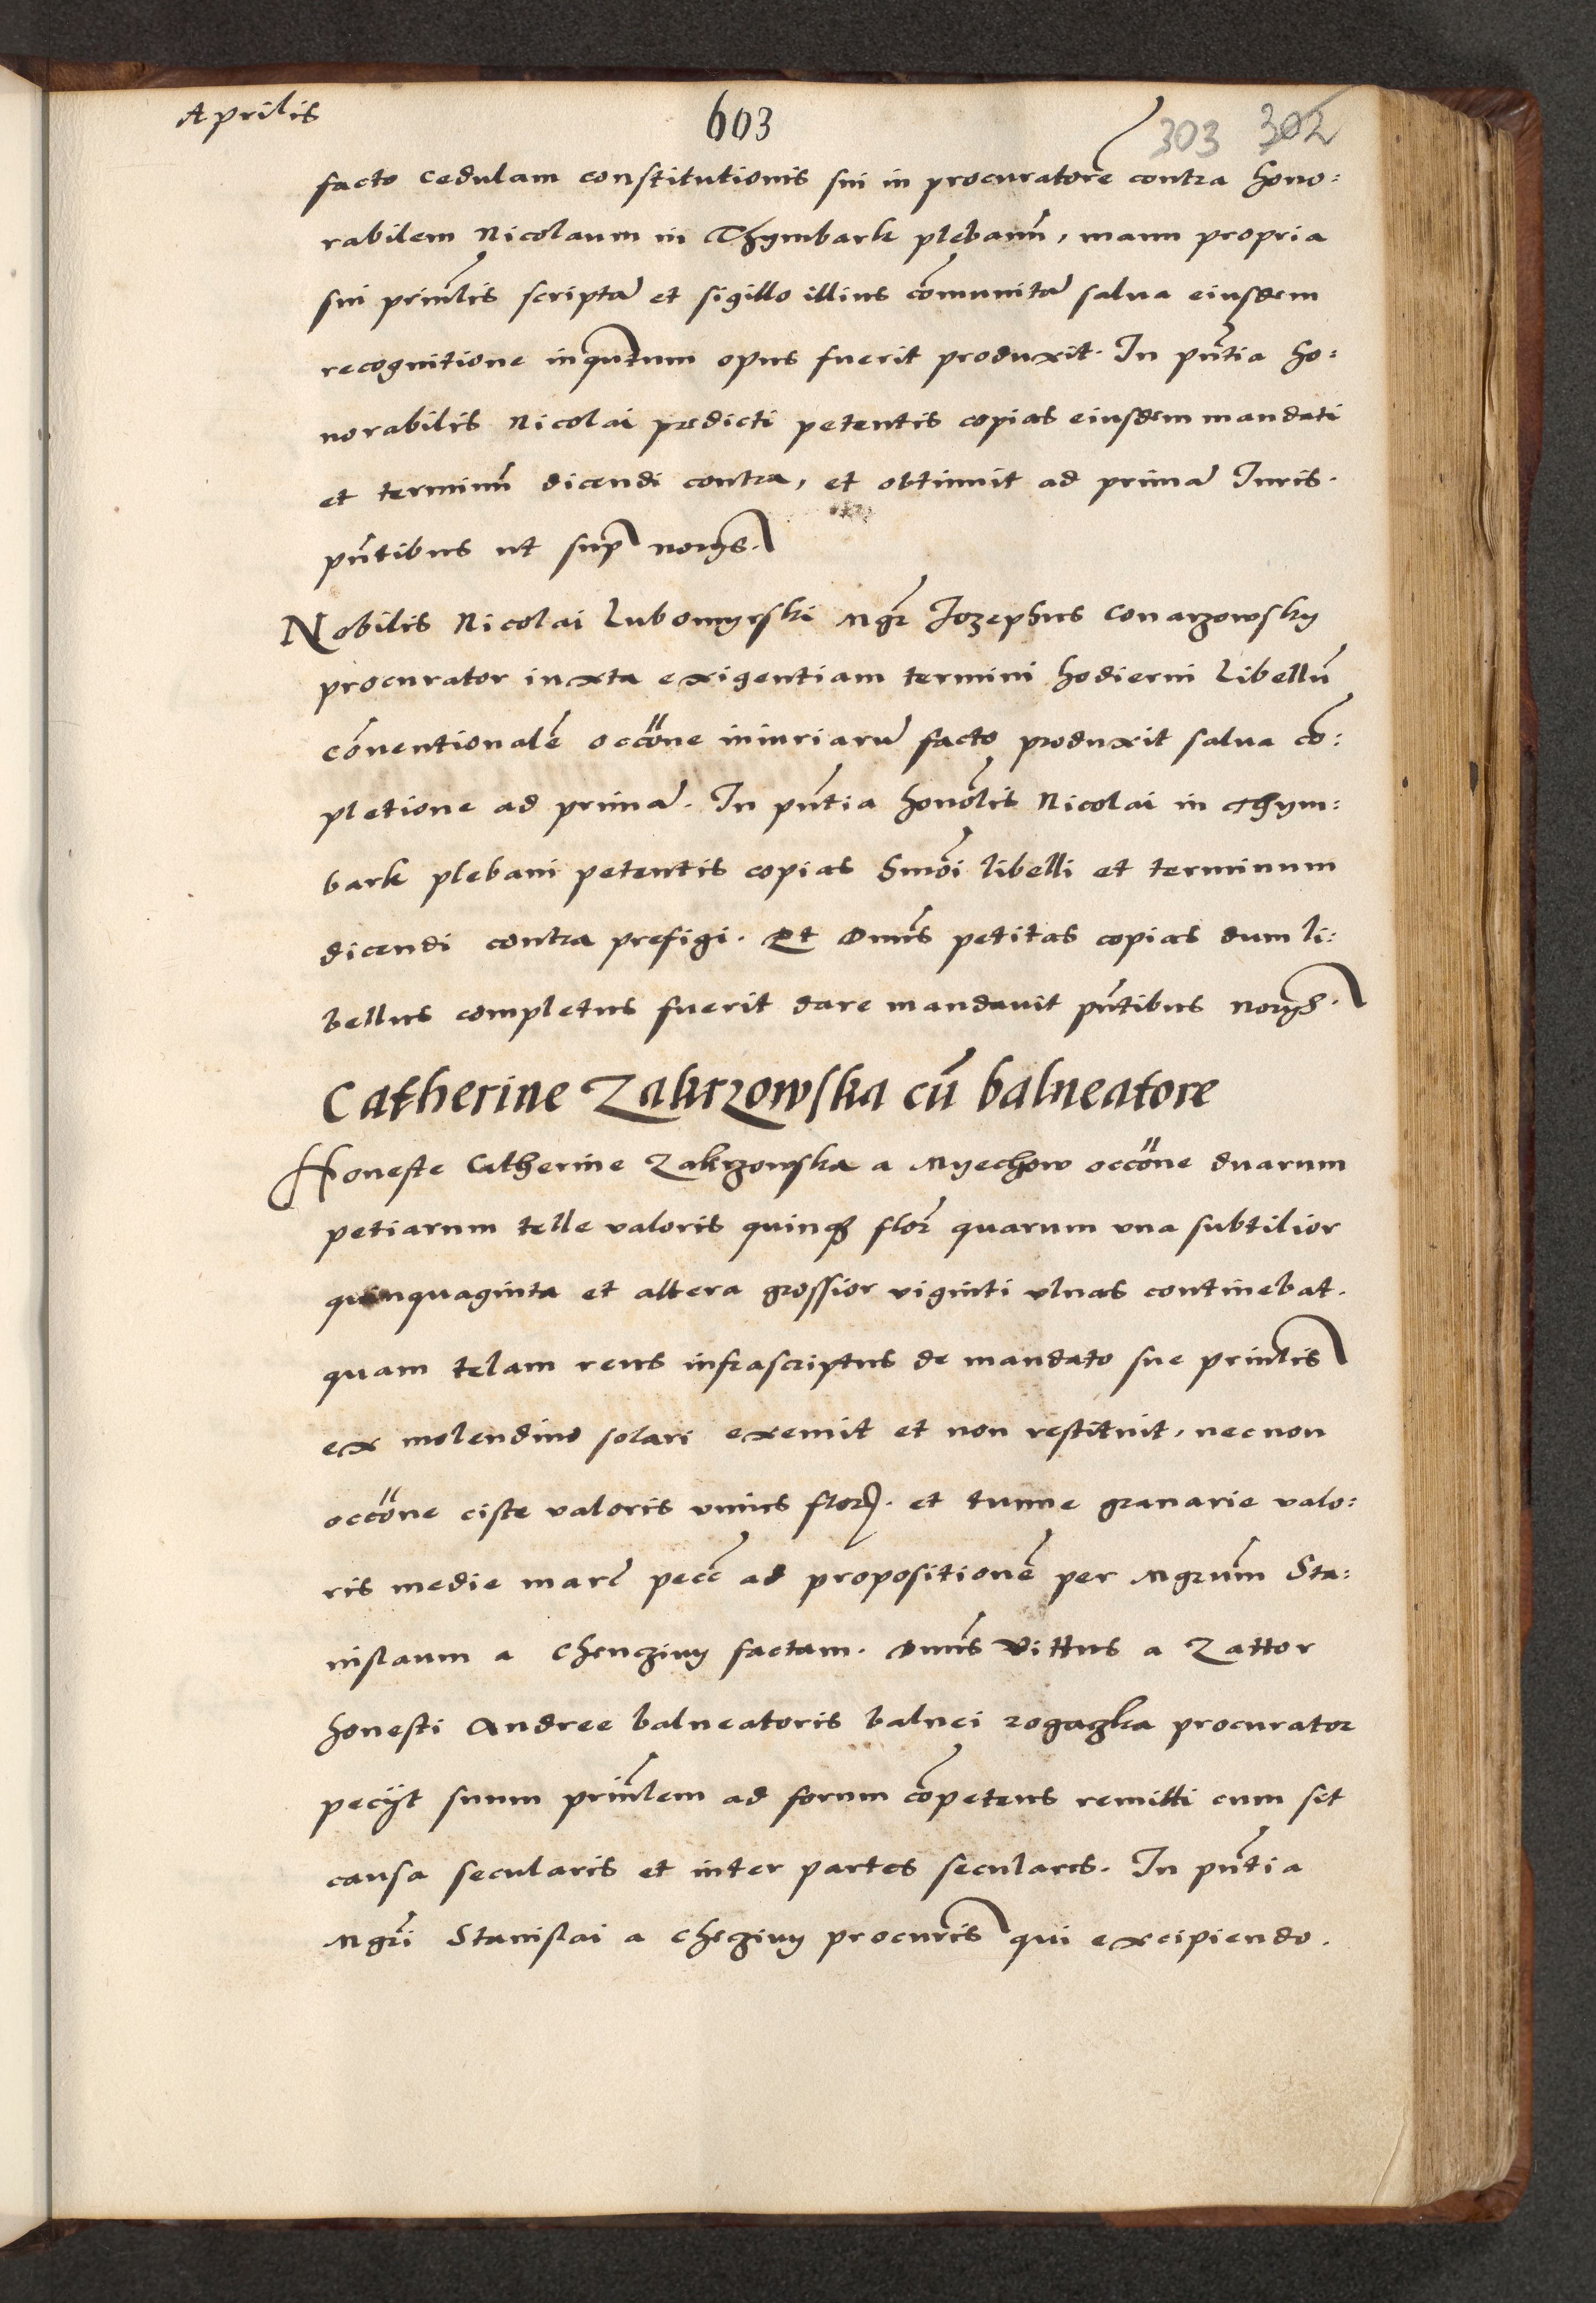 Aprilis
603
303 302
facto cedulam constitutionis sui in procuratorē contra hono:
rabilem Nicolaum in Thymbark plebanū, manu propria
sui prīnlis scriptā et sigillo illius cōmunitā salua eiusdem
recognitione inqūtum opus fuerit produxit. In pūtia ho:
norabilis Nicolai predicti petentis copias eiusdem mandati
et terminū dicendi contra, et obtinuit ad primā Iuris.
pūtibus ut sup̄ norijs.
Nobilis Nicolai Lubomyrski Mgr̄ Jozephus Conarzowsky
procurator iuxta exigentiam termini hodierni libellū
cōnentionalē occōne iniuriarū facto produxit salua cō:
pletione ad primā. In pūtia honōlis Nicolai in Thym:
bark plebani petentis copias hmōi libelli et terminum
dicendi contra prefigi. Et Dnūs petitas copias dum li:
bellus completus fuerit dare mandauit pūtibus norijs.
Catherine Zakrzowska cū balneatore
Honeste Catherine Zakrzowska a Myechow occōne duarum
petiarum telle valoris quinq3 flor̄ quarum vna subtilior
quinquaginta et altera grossior viginti vlnas continebat.
quam telam reus infrascriptus de mandato sue prīnlis
ex molendino solari exemit et non restituit, necnon
occōne ciste valoris vnius flor. et tunne granarie valo:
ris medie marc̄ pecc̄ ad propositionē per Mgrūm Sta:
nislaum a Chenziny factam. Dnūs Vittus a Zattor
honesti Andree balneatoris balnei rogaczka procurator
pecijt suum prīnlem ad forum cōpetens remitti cum sit
causa secularis et inter partes seculares. In pūtia
Mgrī Stanislai a Cheziny procurīs qui excipiendo.